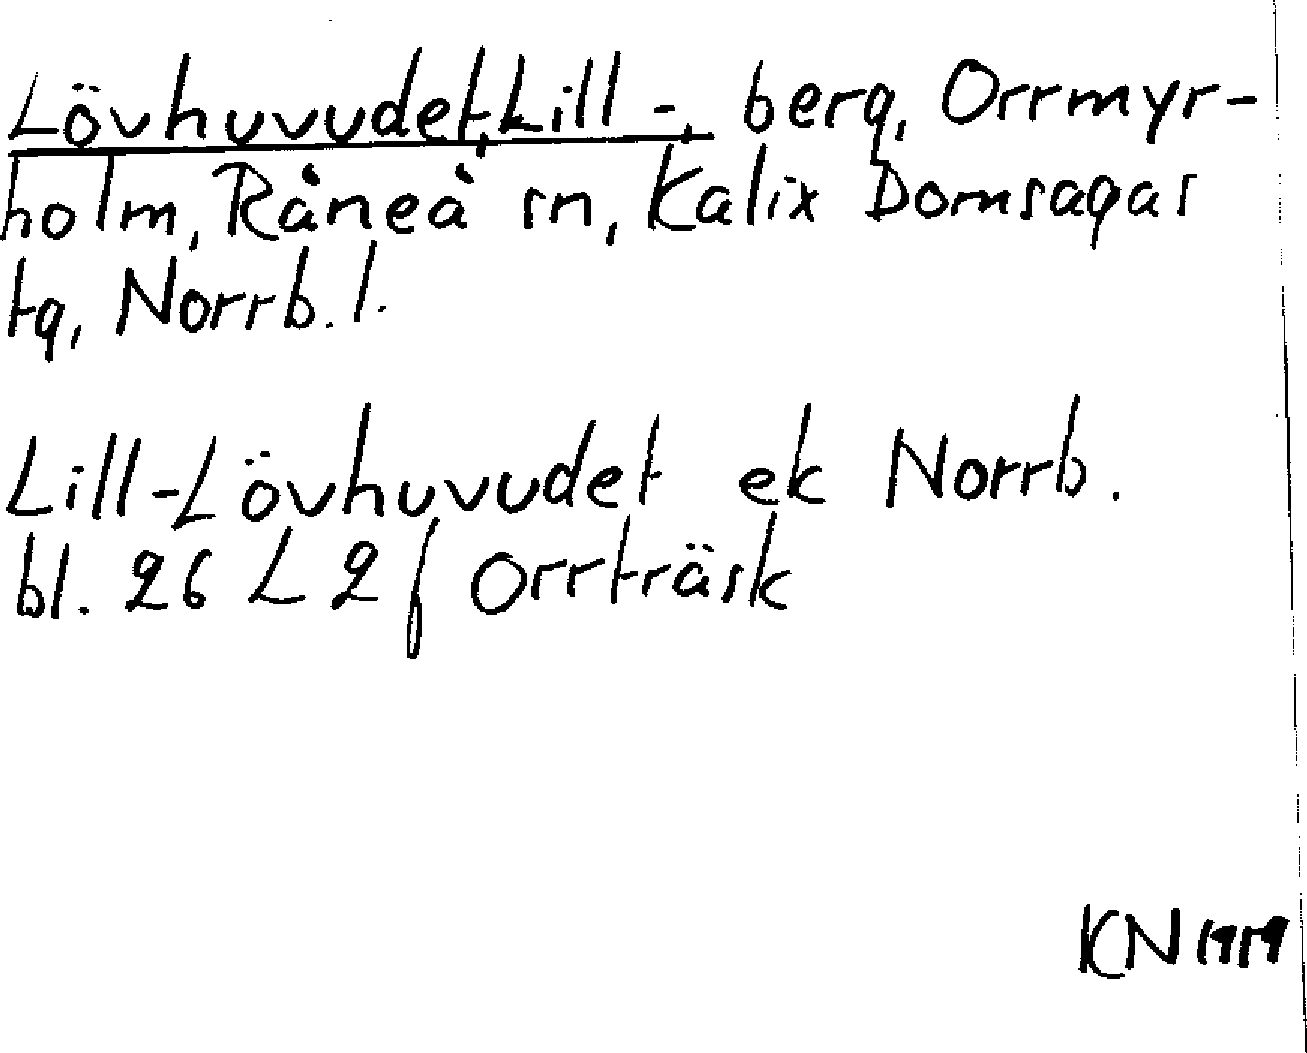 Lövhuvudet, Lill-, berg, Orrmyr-
holm, Råneå sn, Kalix Domsagas
tg, Norrb. l.
Lill-Lövhuvudet ek Norrb.
bl. 26 L 2 f Orrträsk
KN 1959